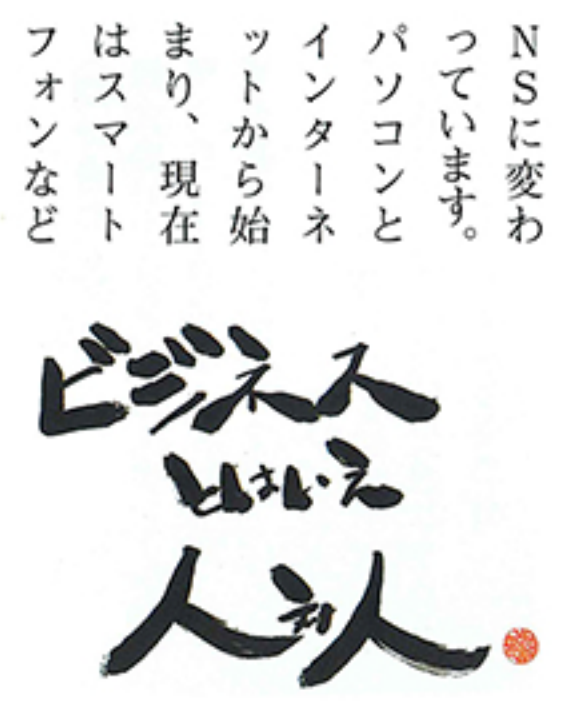 NSに変わ
っています。
パソコンと
インターネ
ットから始
まり、現在
はスマート
フォンなど
ビジネス
とはいえ
人対人